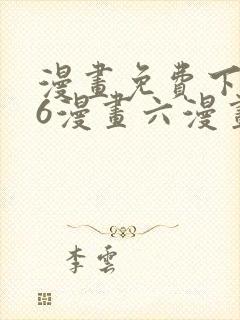 漫畫免費下
6漫畫六漫畫
李雲